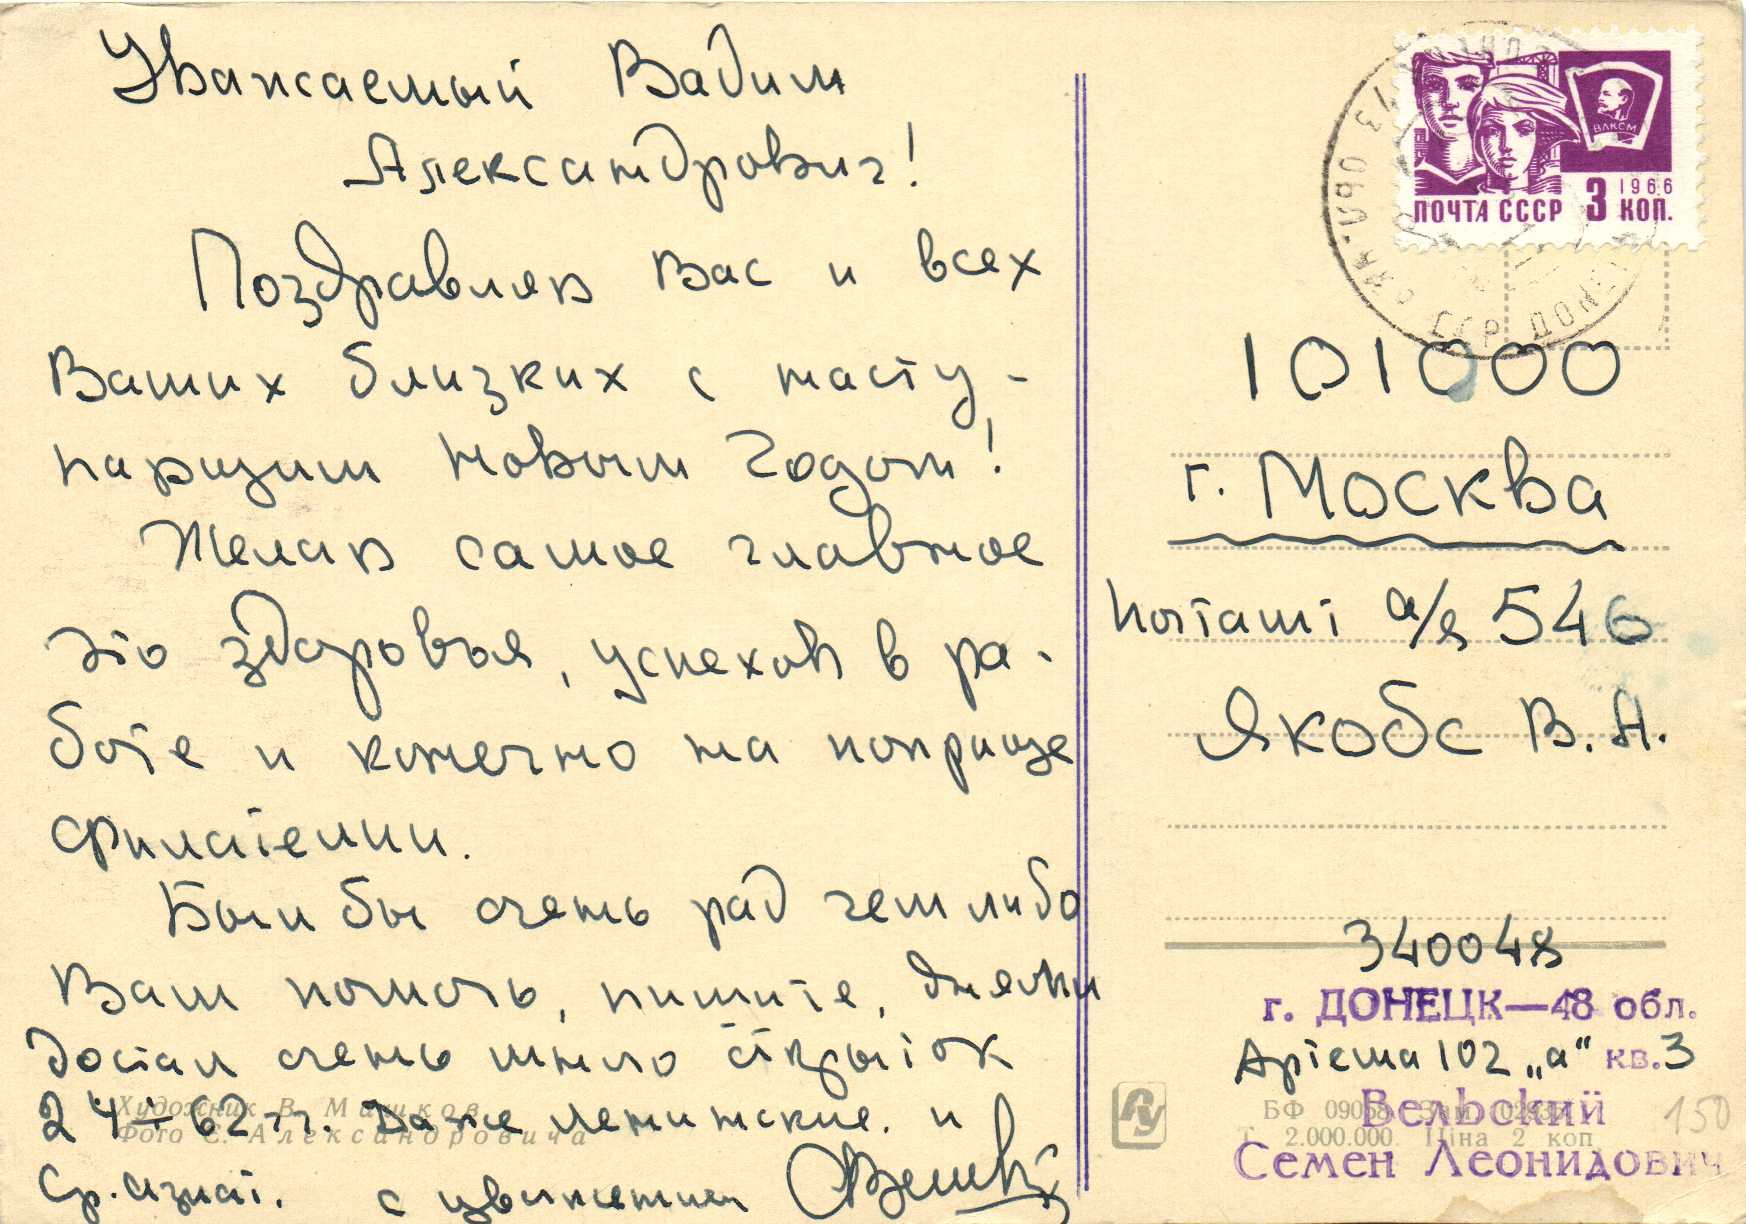 Уважаемый Вадим
Александрович!
Поздравляю Вас и всех
Ваших близких с насту-
пающим Новым Годом!
Желаю самое главное
это здоровья, успехов в ра-
боте и конечно на поприще
филателии.
Был бы очень рад чем либо
Вам помочь, пишите, днями
достал очень много открыток
24÷62 гг. Даже ленинские. и
Ср. азиат. с уважением
Художник В. Машков
Фото С. Александровича
ВЛКСМ
1966
ПОЧТА СССР 3 КОП.
101000
г. Москва
почтамт а/я 546
Якобс В. А.
340048
г. ДОНЕЦК—48 обл.
Артема 102 „а“ кв. 3
БФ 09058
Вельский
Т. 2.000.000. Ціна 2 коп
Семен Леонидович
150